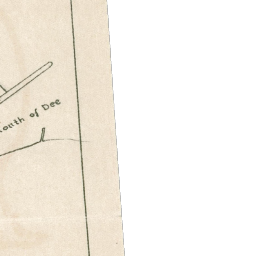 outh of Dee